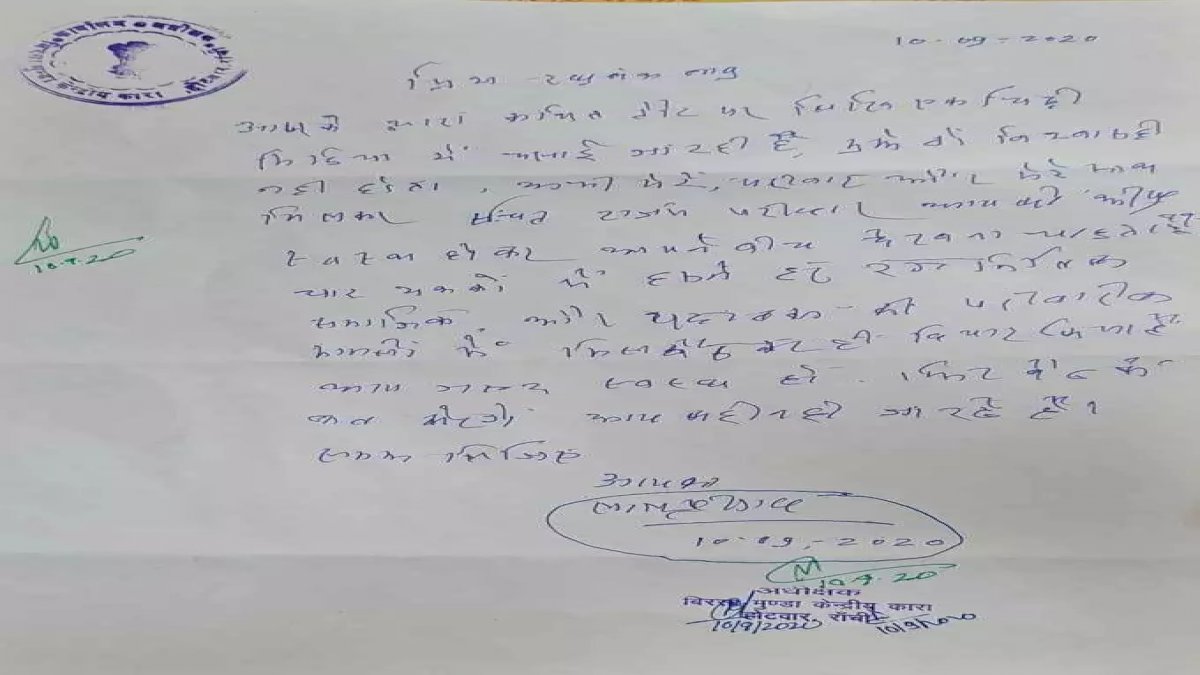 केन्द्रीय कारा
10-09-2020
प्रिय रघुवंश बाबु
आपके द्वारा कथित तौर पर लिखि एक चिट्ठी
मिडिया में चलाई जा रही है, मुझे तो विश्वास ही
नही होता, अभी मेरे, परिवार और मेरे साथ
मिलकर राजद परिवार आपको शीघ्र
स्वस्थ होकर आपने बीच देखना चाहता है
चार दशकों में हमने हर राजनितिक
समाजिक, और यहाँ तक की परिवारीक
मामलों में मिल बैठ कर ही विचार किया है
आप जल्द स्वस्थ हो. फिर बैठ के
बात करेंगे आप कहीं नही जा रहे हैं।
समझ लिजिए
आपका
लालू प्रसाद
10-09-2020
10.9.20
10.9.20
अधीक्षक
बिरसा मुण्डा केन्द्रीय कारा
होटवार, राँची
10/9/2020
10/9/2020